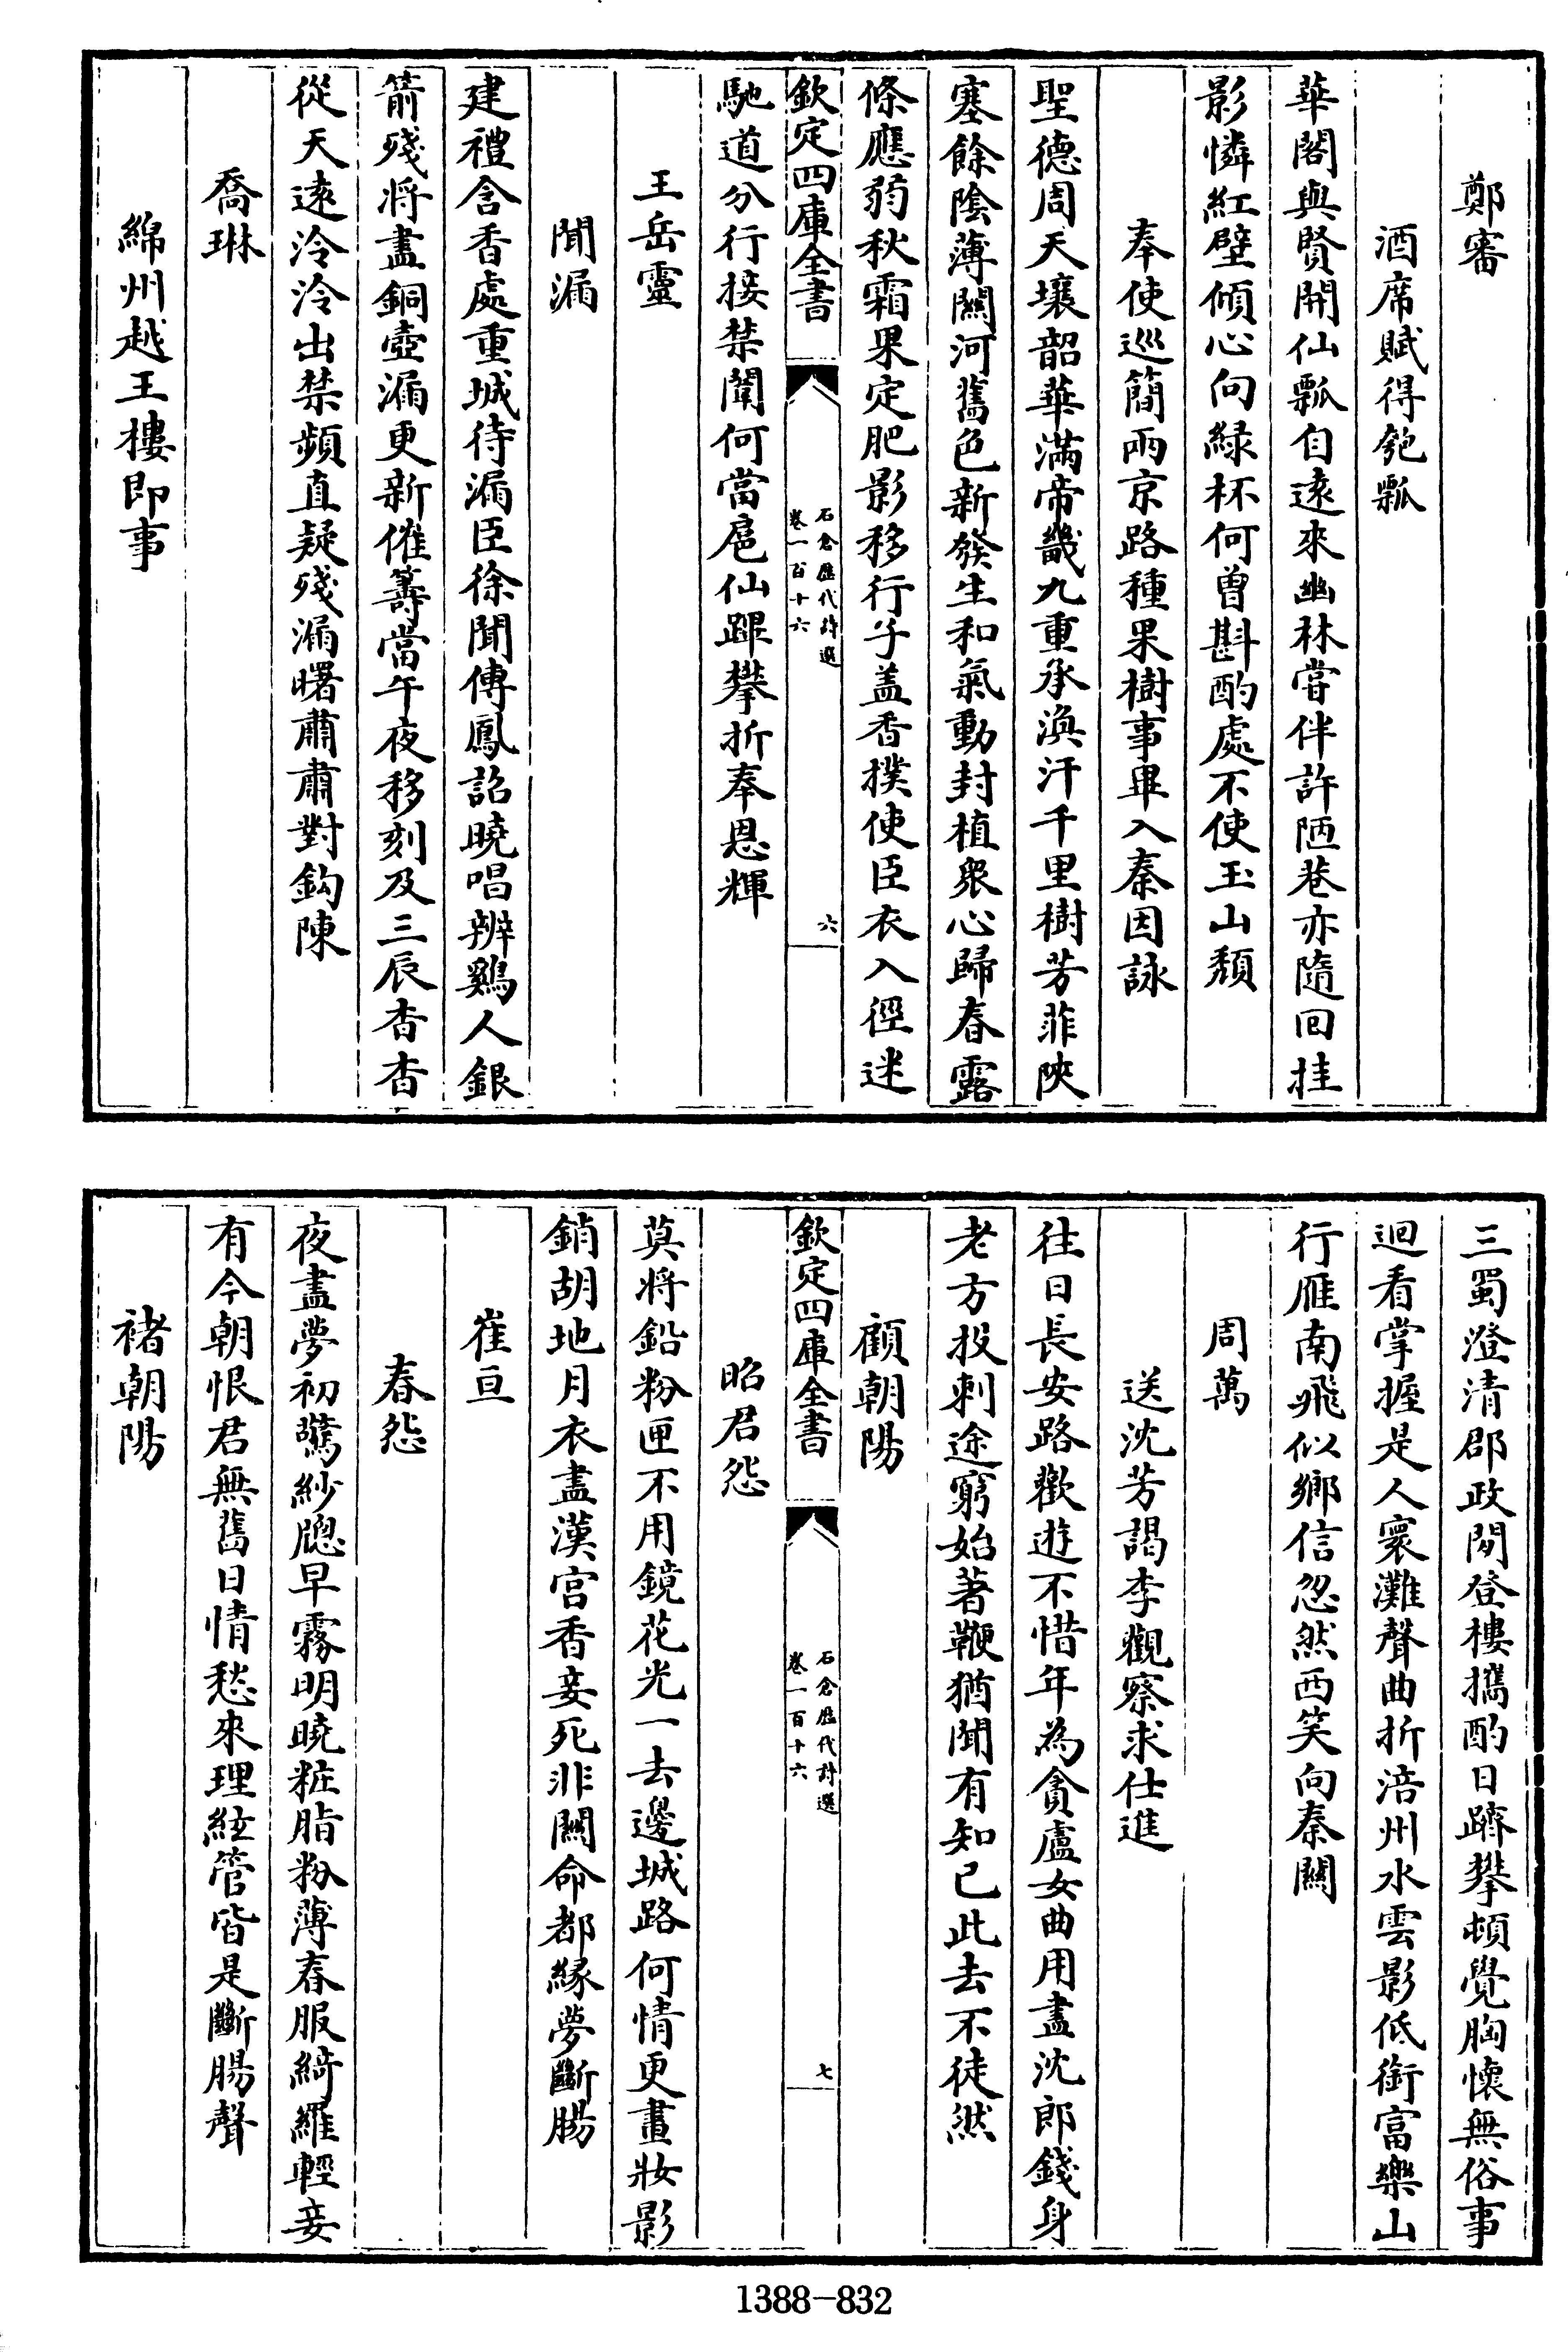 鄭審
酒席賦得匏瓢
華閣與賢開仙瓢自遠來幽林嘗伴許陋巷亦隨回挂
影憐紅壁傾心向緑杯何曾斟酌處不使玉山頽
奉使巡簡兩京路種果樹事畢入秦因詠
聖德周天壤韶華滿帝畿九重承渙汗千里樹芳菲陜
塞餘陰薄關河舊色新發生和氣動封植衆心歸春露
條應弱秋霜果定肥影移行子盖香撲使臣衣入徑迷
欽定四庫全書
石倉歷代詩選
卷一百十六
六
馳道分行接禁闈何當扈仙蹕攀折奉恩輝
王岳靈
聞漏
建禮含香處重城待漏臣徐聞傳鳳詔曉唱辨鷄人銀
箭殘将盡銅壺漏更新催籌當午夜移刻及三辰杳杳
從天遠泠泠出禁頻直疑殘漏曙肅肅對鈎陳
喬琳
綿州越王樓即事
三蜀澄清郡政閑登樓攜酌日躋攀頓覺胸懷無俗事
迴看掌握是人寰灘聲曲折涪州水雲影低銜富樂山
行雁南飛似鄉信忽然西笑向秦關
周萬
送沈芳謁李觀察求仕進
往日長安路歡遊不惜年為貪盧女曲用盡沈郎錢身
老方投刺途窮始著鞭猶聞有知已此去不徒然
顧朝陽
欽定四庫全書
石倉歷代詩選
卷一百十六
七
昭君怨
莫将鉛粉匣不用鏡花光一去邊城路何情更畫妝影
銷胡地月衣盡漢宫香妾死非關命都縁夢斷腸
崔亘
春怨
夜盡夢初驚紗牕早霧明曉粧脂粉薄春服綺羅輕妾
有今朝恨君無舊日情愁來理絃管皆是斷腸聲
褚朝陽
1388-832